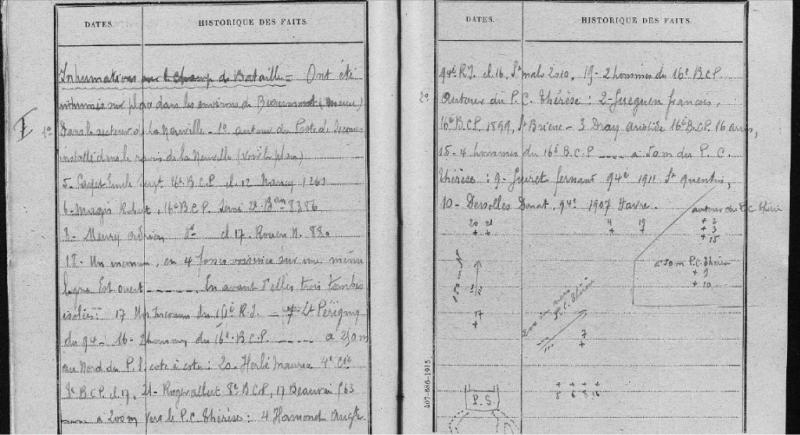 DATES.
HISTORIQUE DES FAITS.
Inhumations sur le champ de Bataille = Ont été
inhumés sur place dans les environs de Beaumont (Meuse)
I 1° Dans le secteur de la Neuville - 1° autour du Poste de Secours
installé dans le ravin de la Neuville (voir le plan)
5. Sergt 16e B.C.P. cl 12 Nancy 1263
6 - Magis Robert, 16e B.C.P. 8386
8 - Meury Adrien d° cl 17. Rouen N. 880
18 - Un inconnu, en 4 fosses sur une même
ligne Est ouest ---- En avant d'elles trois tombes
isolées: 17 Un Inconnu du R.I. - 7 - Lt Pérignon
du 94 - 16 - 2 hommes du 16e B.C.P. ---- à 250m
au Nord du P.S. cote à cote: 20 - Herlé Maurice 4e Cie
8e B.C.P. cl 17, 21 - Roger Albert 8e B.C.P., 17 Beauvais 963
---- à 200m vers le P.C. Thérèse: 4 Hamond Augte
DATES.
HISTORIQUE DES FAITS.
94e R.I. cl 16, St malo 2010. 19 - 2 hommes du 16e B.C.P.
2° Autour du P.C. Thérèse: 2 - Gueguen francois,
16e B.C.P. 1899, St Brieuc - 3 Dray Aristide 16e B.C.P. 16
15 - 4 hommes du 16e B.C.P. ---- à 50m du P.C.
Thérèse: 9 - fernand 94e 1911 St quentin,
10 - Donat, 94e 1907 Havre.
20 21
+ +
4 19
+ +
autour du P.C. Thérèse
+ 2
+ 3
+ 15
à 50m P.C. Thérèse
+ 9
+ 10
200m vers
P.C. Thérèse
17
+
7
+
+ + + +
5 6 8 18
P.S.
407-686-1915